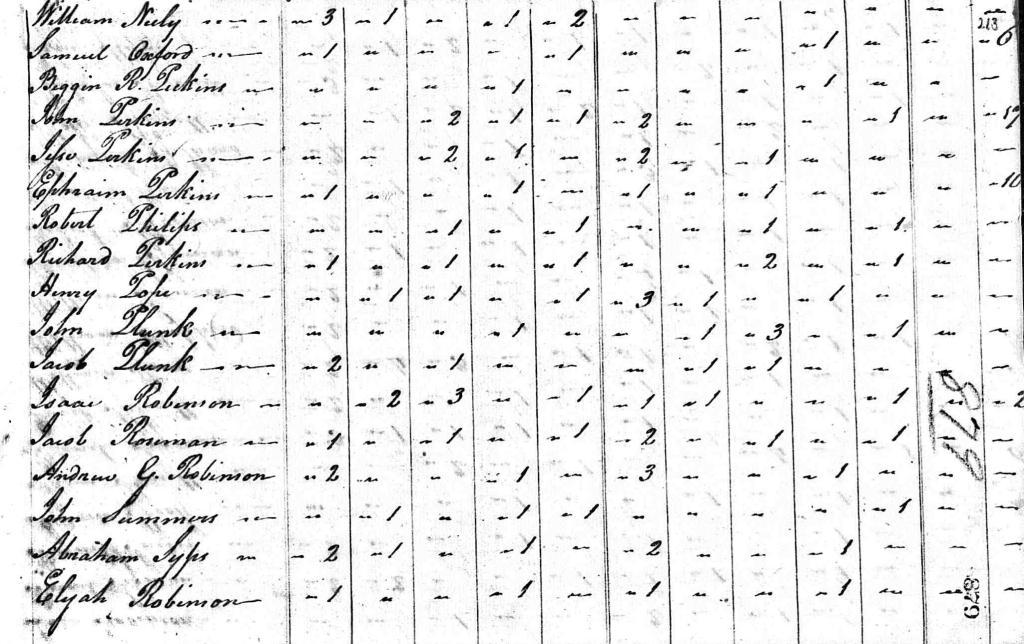 213
William Niely " 3 " 1 " " 1 " 2 " " " " " " 6
Samuel Oxford " 1 " " " " 1 " " " " 1 " " "
Biggin R. Perkins " " " " 1 " " " " 1 " " "
John Perkins " " " 2 " 1 " 1 " 2 " " " " 1 " " 17
Jesse Perkins " " " 2 " 1 " " 2 " " 1 " " " "
Ephraim Perkins " 1 " " " 1 " " 1 " " 1 " " " " 10
Robert Philips " " " 1 " " 1 " " " 1 " " 1 " "
Richard Perkins " 1 " " 1 " " 1 " " " 2 " " 1 " "
Henry Pope " " 1 " 1 " " 1 " 3 " 1 " " 1 " " "
John Plunk " " " " 1 " " " 1 " 3 " " 1 " "
Jacob Plunk " 2 " " 1 " " " " 1 " 1 " " " "
Isaac Robinson " " 2 " 3 " " 1 " 1 " 1 " " " 1 " " 2
Jacob Roseman " 1 " " 1 " " 1 " 2 " " 1 " " 1 " "
Andrew G. Robinson " 2 " " " 1 " " 3 " " " 1 " " "
John Summers " " 1 " " 1 " 1 " " " " " 1 " "
Abraham Syps " 2 " 1 " " 1 " " 2 " " " 1 " " "
Elijah Robinson " 1 " " " 1 " " 1 " " " 1 " " "
879
628